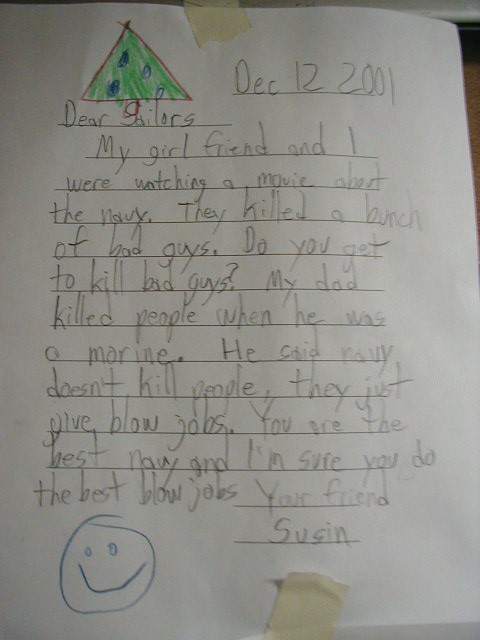 Dec 12 2001
Dear Sailors
My girl friend and I
were watching a movie about
the navy. They killed a bunch
of bad guys. Do you get
to kill bad guys? My dad
killed people when he was
a marine. He said navy
doesn't kill people, they just
give blow jobs. You are the
best navy and I'm sure you do
the best blow jobs Your friend
Susin